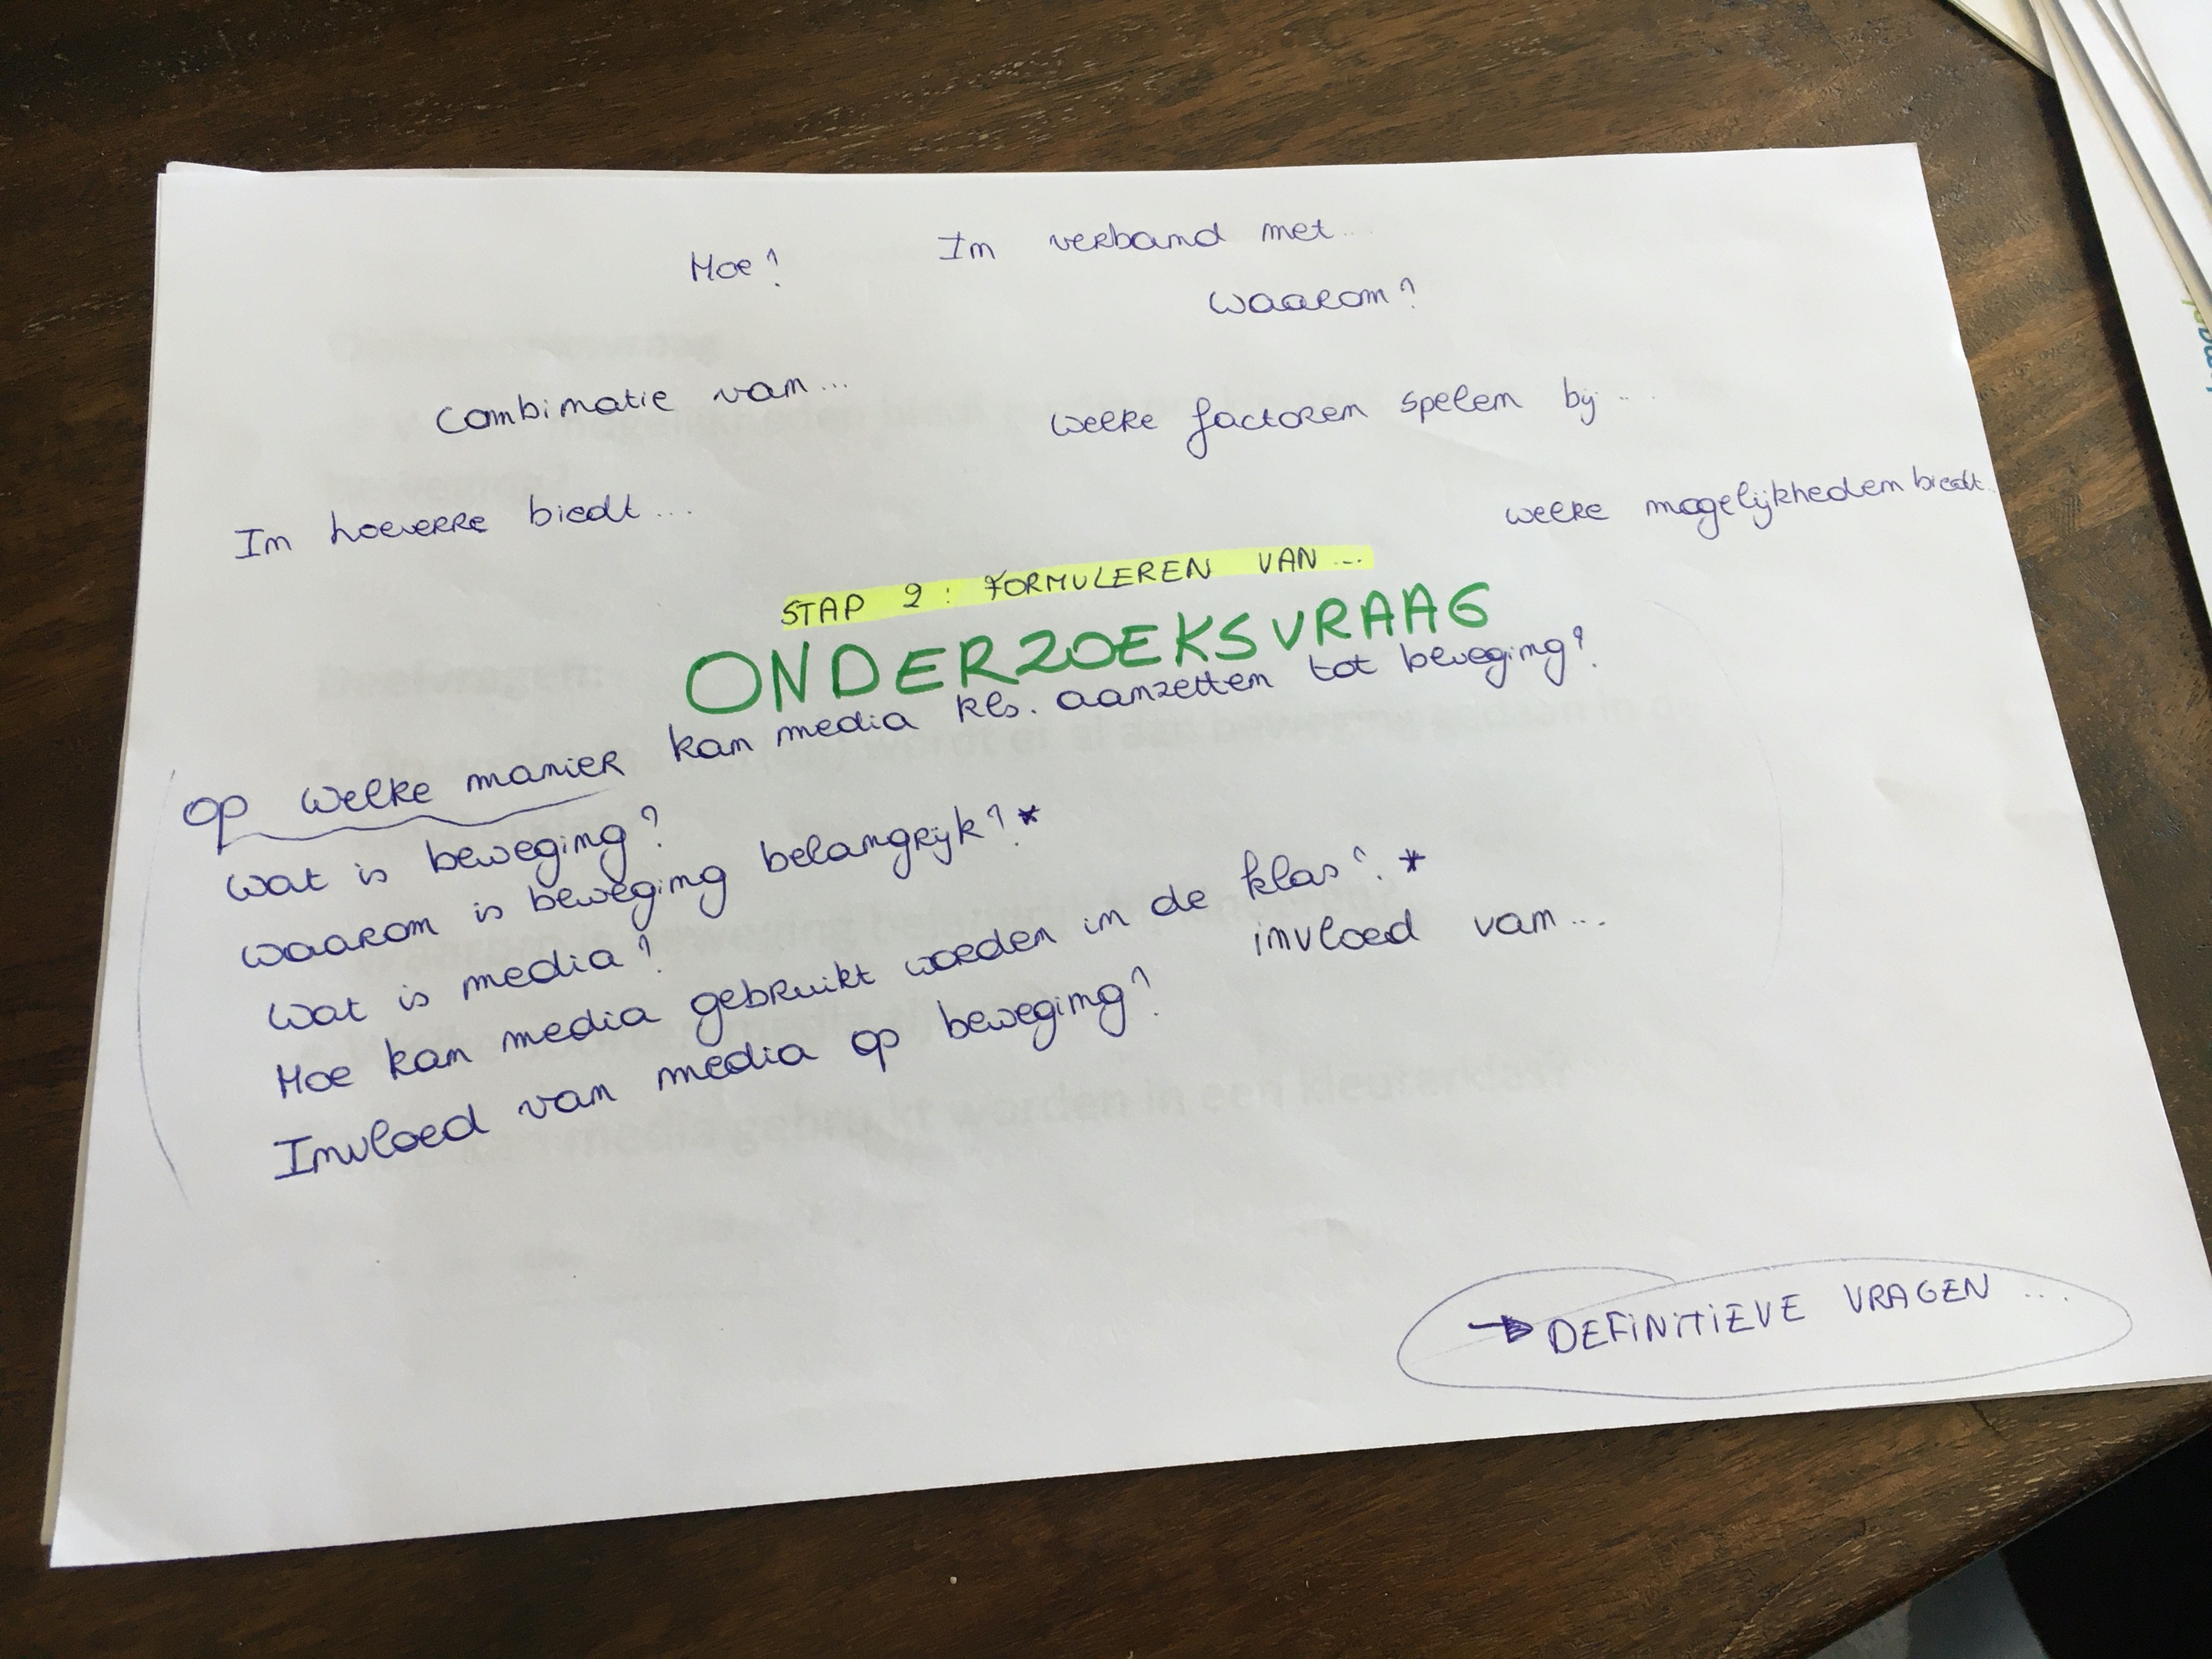 In verband met...
Hoe?
waarom?
combinatie van...
welke factoren spelen bij...
In hoeverre biedt...
welke mogelijkheden biedt...
STAP 2: FORMULEREN VAN...
ONDERZOEKSVRAAG
op welke manier kan media kls. aanzetten tot beweging?
wat is beweging?
waarom is beweging belangrijk? *
wat is media?
Hoe kan media gebruikt worden in de klas? *
invloed van...
Invloed van media op beweging?
→ DEFINITIEVE VRAGEN...